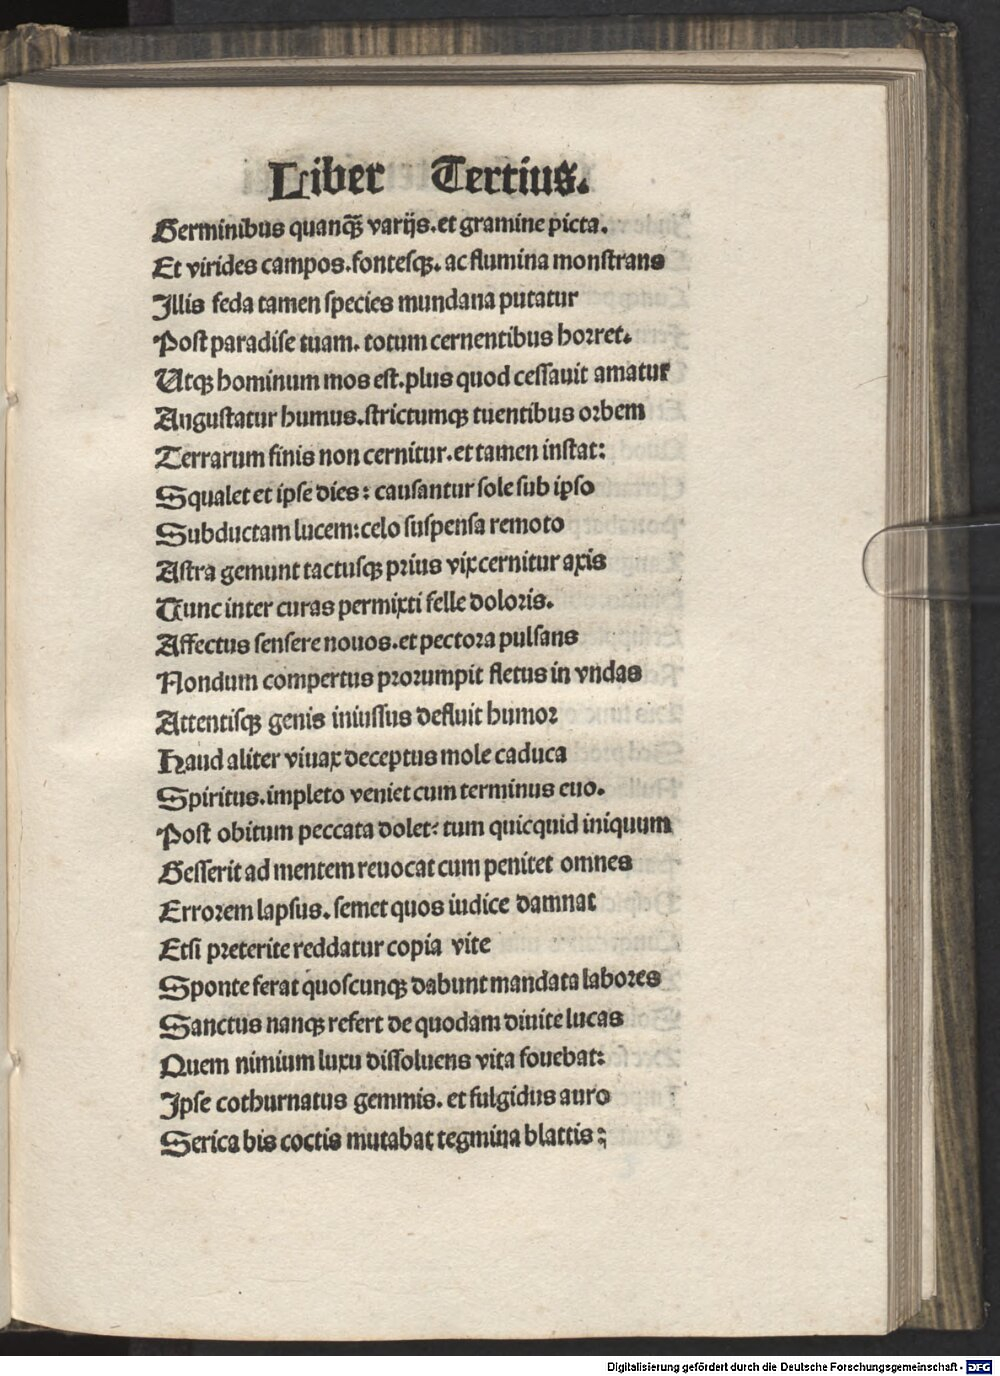 Liber Tertius.
Germinibus quanq̃ varijs.et gramine picta.
Et virides campos.fontesqꝫ. ac flumina monstrans
Illis feda tamen species mundana putatur
Post paradise tuam. totum cernentibus horret.
Utqꝫ hominum mos est.plus quod cessauit amatur
Angustatur humus.strictumqꝫ tuentibus orbem
Terrarum finis non cernitur.et tamen instat:
Squalet et ipse dies: causantur sole sub ipso
Subductam lucem:celo suspensa remoto
Astra gemunt tactusqꝫ prius vix cernitur axis
Tunc inter curas permixti felle doloris.
Affectus sensere nouos.et pectora pulsans
Nondum compertus prorumpit fletus in vndas
Attentisqꝫ genis iniussus defluit humor
Haud aliter viuax deceptus mole caduca
Spiritus.impleto veniet cum terminus euo.
Post obitum peccata dolet: tum quicquid iniquum
Gesserit ad mentem reuocat cum penitet omnes
Errorem lapsus. semet quos iudice damnat
Etsi preterite reddatur copia vite
Sponte ferat quoscunqꝫ dabunt mandata labores
Sanctus nanqꝫ refert de quodam diuite lucas
Quem nimium luxu dissoluens vita fouebat:
Ipse cothurnatus gemmis. et fulgidus auro
Serica bis coctis mutabat tegmina blattis:
Digitalisierung gefördert durch die Deutsche Forschungsgemeinschaft - DFG